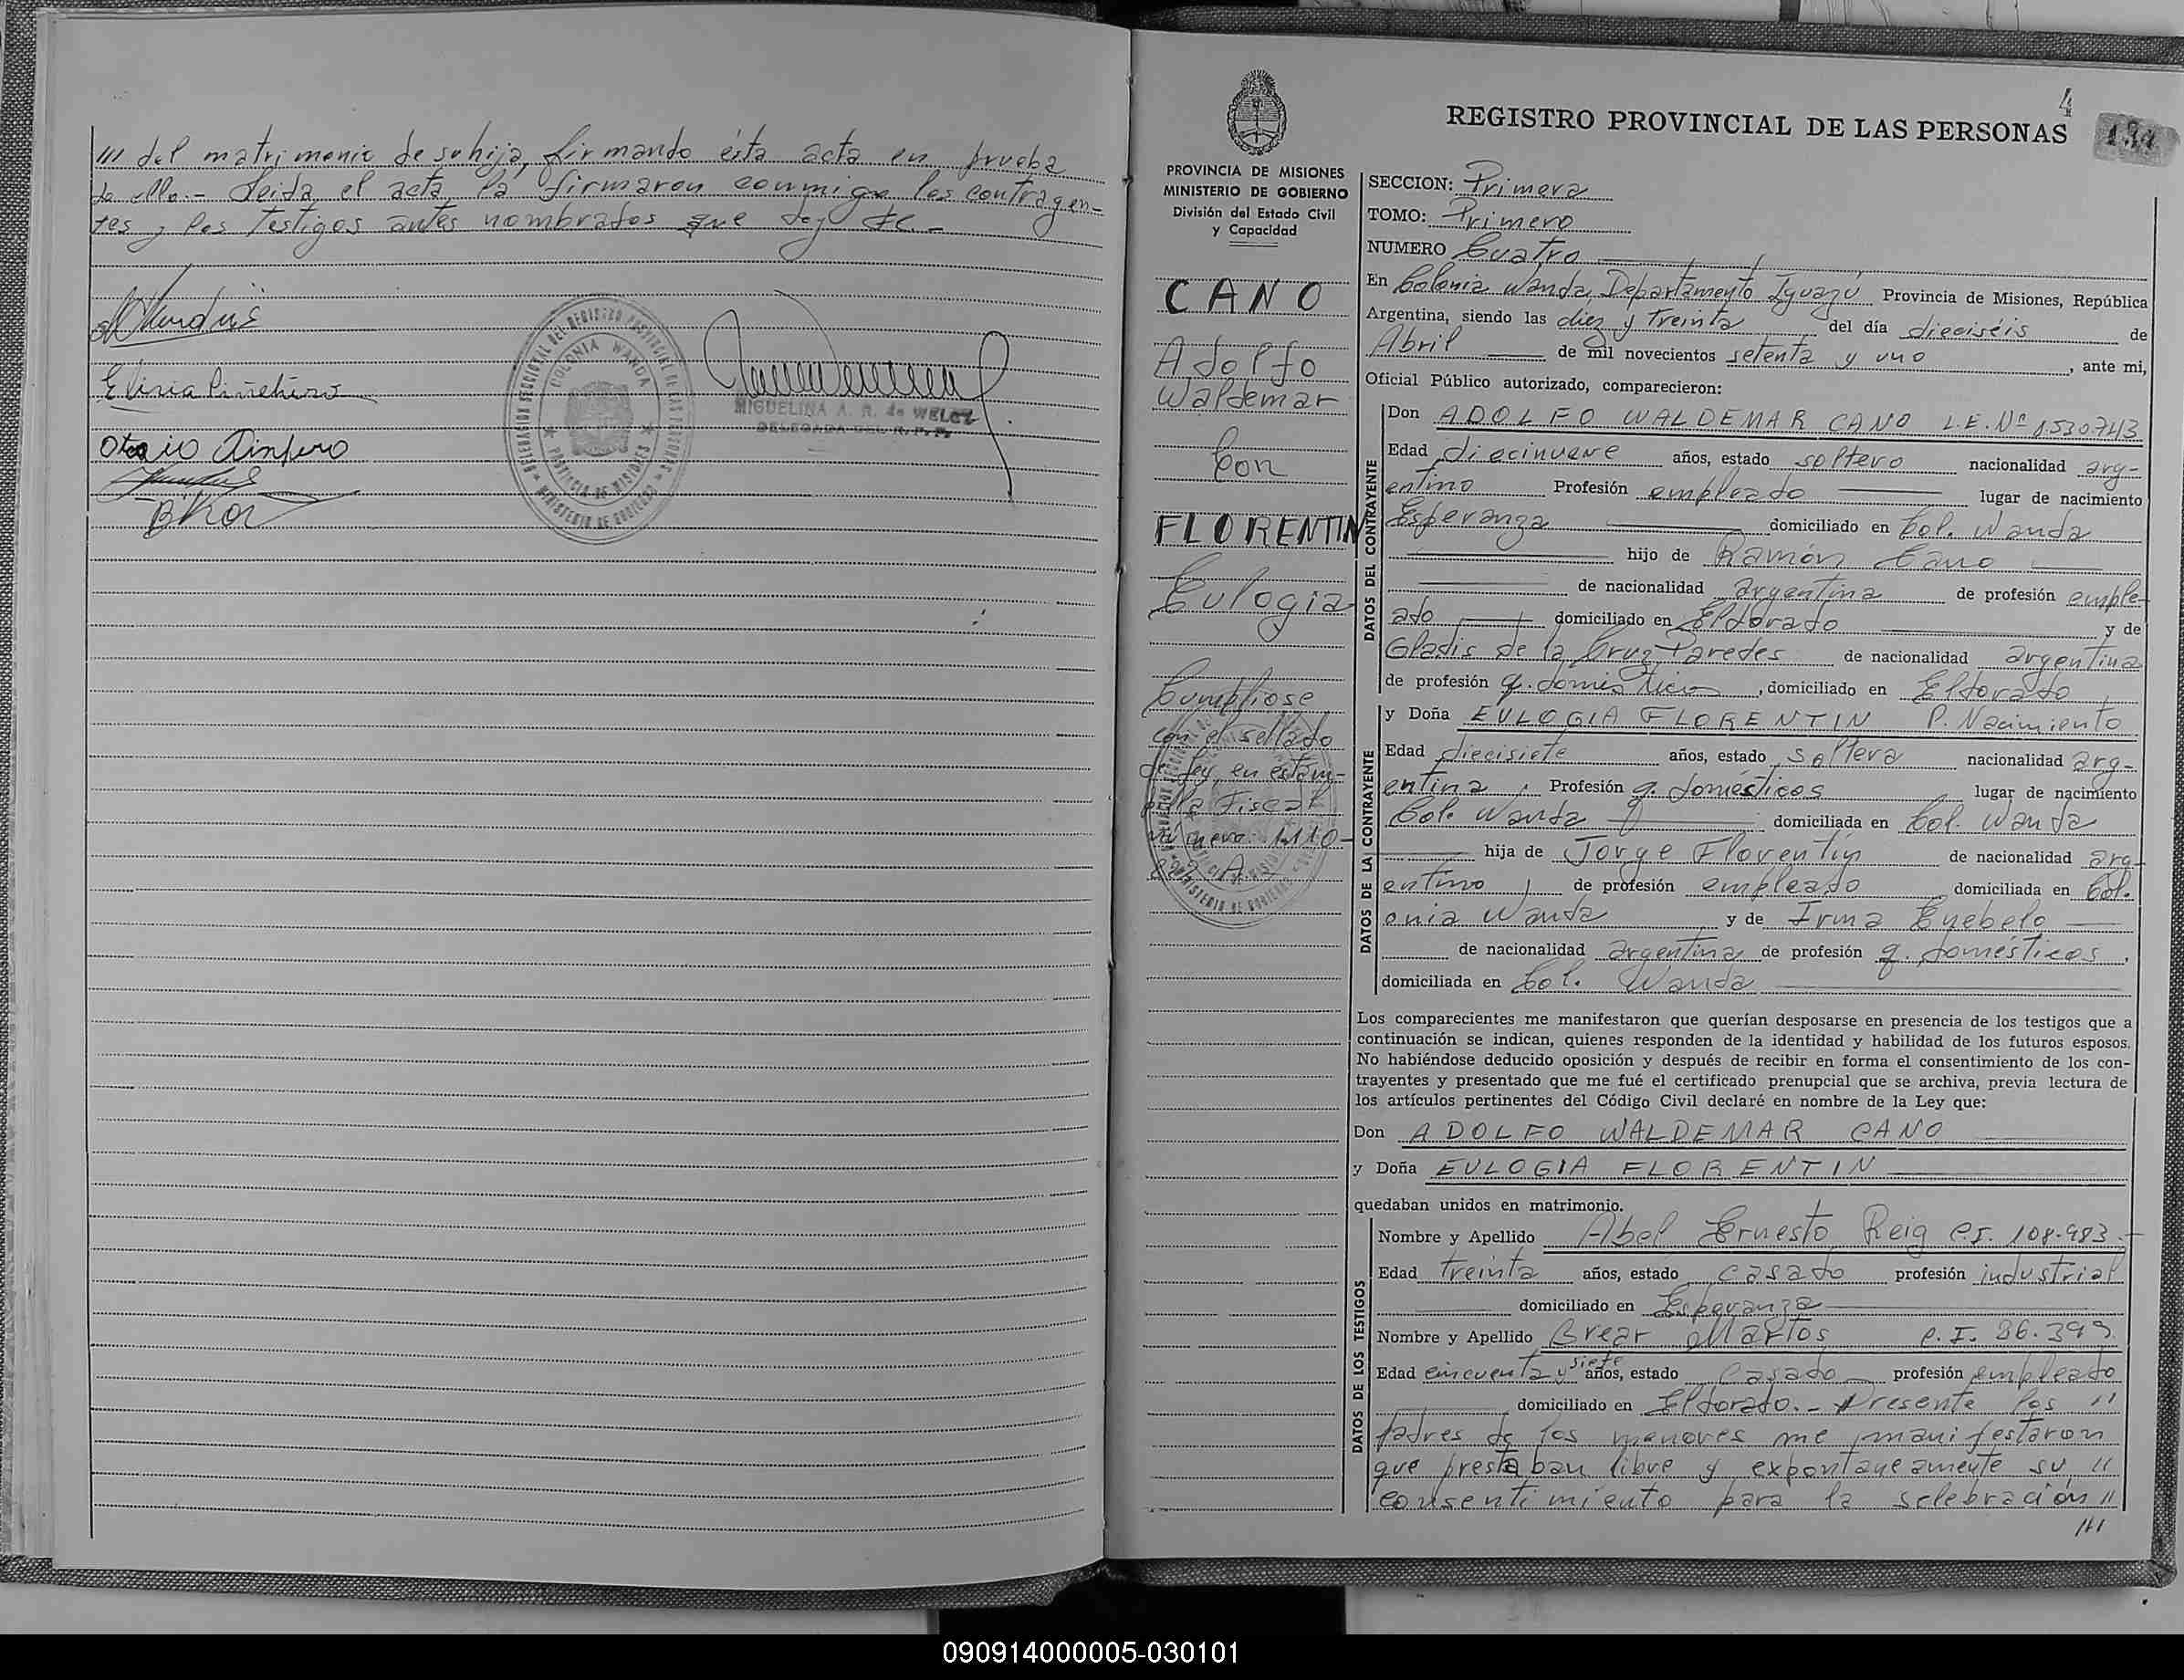 /// del matrimonio de su hija, firmando ésta acta en prueba
de ello.- Leida el acta la firmaron conmigo los contrayen-
tes y los testigos antes nombrados que doy fe.-
Elivia Piñehiro
MIGUELINA A. R. de WELCZ
DELEGADA DEL R. P. P.
DELEGACION SECCIONAL DEL REGISTRO PROVINCIAL DE LAS PERSONAS
COLONIA WANDA
PROVINCIA DE MISIONES
MINISTERIO DE GOBIERNO
4
REGISTRO PROVINCIAL DE LAS PERSONAS
PROVINCIA DE MISIONES
MINISTERIO DE GOBIERNO
División del Estado Civil
y Capacidad
CANO
Adolfo
Waldemar
Con
FLORENTIN
Eulogia
Cumpliose
con el sellado
de ley, en estam-
pilla Fiscal
número: 1.110-
SECCION: Primera
TOMO: Primero
NUMERO Cuatro
En Colonia Wanda, Departamento Iguazú Provincia de Misiones, República
Argentina, siendo las diez y treinta del día dieciséis de
Abril de mil novecientos setenta y uno, ante mi,
Oficial Público autorizado, comparecieron:
DATOS DEL CONTRAYENTE
Don ADOLFO WALDEMAR CANO L.E. Nº 1.530.743
Edad diecinueve años, estado soltero nacionalidad arg-
entino Profesión empleado lugar de nacimiento
Esperanza domiciliado en Col. Wanda
hijo de Ramón Cano
de nacionalidad argentina de profesión emple-
ado domiciliado en Eldorado y de
Gladis de la Cruz Paredes de nacionalidad argentina
de profesión q. domésticos, domiciliado en Eldorado
DATOS DE LA CONTRAYENTE
y Doña EULOGIA FLORENTIN P. Nacimiento
Edad diecisiete años, estado soltera nacionalidad arg-
entina, Profesión q. domésticos lugar de nacimiento
Col. Wanda domiciliada en Col. Wanda
hija de Jorge Florentín de nacionalidad arg-
entino de profesión empleado domiciliada en Col-
onia Wanda y de Irma Cuebelo
de nacionalidad argentina de profesión q. domésticos,
domiciliada en Col. Wanda
Los comparecientes me manifestaron que querían desposarse en presencia de los testigos que a
continuación se indican, quienes responden de la identidad y habilidad de los futuros esposos.
No habiéndose deducido oposición y después de recibir en forma el consentimiento de los con-
trayentes y presentado que me fué el certificado prenupcial que se archiva, previa lectura de
los artículos pertinentes del Código Civil declaré en nombre de la Ley que:
Don ADOLFO WALDEMAR CANO
y Doña EULOGIA FLORENTIN
quedaban unidos en matrimonio.
DATOS DE LOS TESTIGOS
Nombre y Apellido Abel Ernesto Reig C.I. 108.983
Edad treinta años, estado casado profesión industrial
domiciliado en Esperanza
Nombre y Apellido Brear Martos C.I. 86.399
Edad cincuenta y siete años, estado casado profesión empleado
domiciliado en Eldorado.- Presente los //
padres de los menores me manifestaron
que prestaban libre y expontaneamente su //
consentimiento para la selebración //
///
090914000005-030101